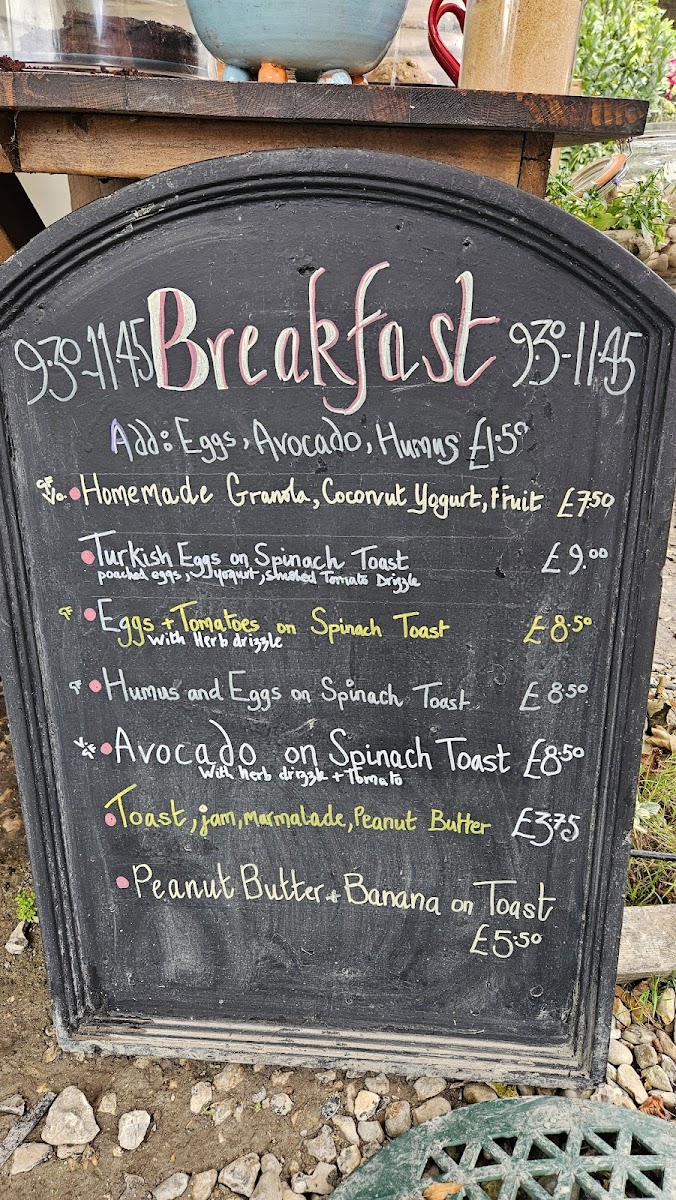 9.30-11.45 Breakfast 9.30-11.45
Add: Eggs, Avocado, Humus £1.50
GF V/o. • Homemade Granola, Coconut Yogurt, Fruit £7.50
• Turkish Eggs on Spinach Toast £9.00
poached eggs, yogurt, smoked Tomato Drizzle
GF • Eggs + Tomatoes on Spinach Toast £8.50
with Herb drizzle
GF • Humus and Eggs on Spinach Toast £8.50
• Avocado on Spinach Toast £8.50
with herb drizzle + Tomato
• Toast, jam, marmalade, Peanut Butter £3.75
• Peanut Butter + Banana on Toast
£5.50